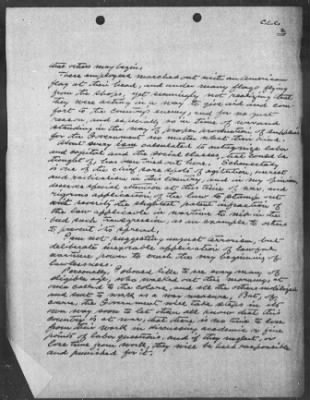 2
their vetoes may begin.
These employees marched out with an American
flag at their head, and under many flags flying
from the shops, yet seemingly not realizing that
they were acting in a way to give aid and com-
fort to the country's enemy, and for no just
reason, and especially so in time of war and
standing in the way of proper production of supplies
for the Government, no matter what their kind.
About every law calculated to antagonize labor
and capital and the social classes, that could be
thought of, has been tried out here. Schenectady
is one of the chief sore spots of agitation, unrest
and radicalism in this country, and in my opinion
deserves special attention at this time of war, and
rigorous application of the law to stamp out
most severely the slightest patent infraction of
the law applicable in wartime to nip in the
bud such transgression, as an example to others
to prevent its spread.
I am not suggesting unjust terrorism, but
deliberate inexorable application of law and
wartime power to crush the very beginning of
lawlessness.
Personally, I should like to see every man of
eligible age, who walked out this morning, at
once called to the colors, and all the others indicted
and sent to work as a war measure. But, of
course, the Government will take steps in its
own way, soon to let them all know that this
country is at war, that there is no time to lose
from their work in discussing academic or fine
points of labor questions, and if they neglect, or
lose time from work, they will be held responsible
and punished for it.